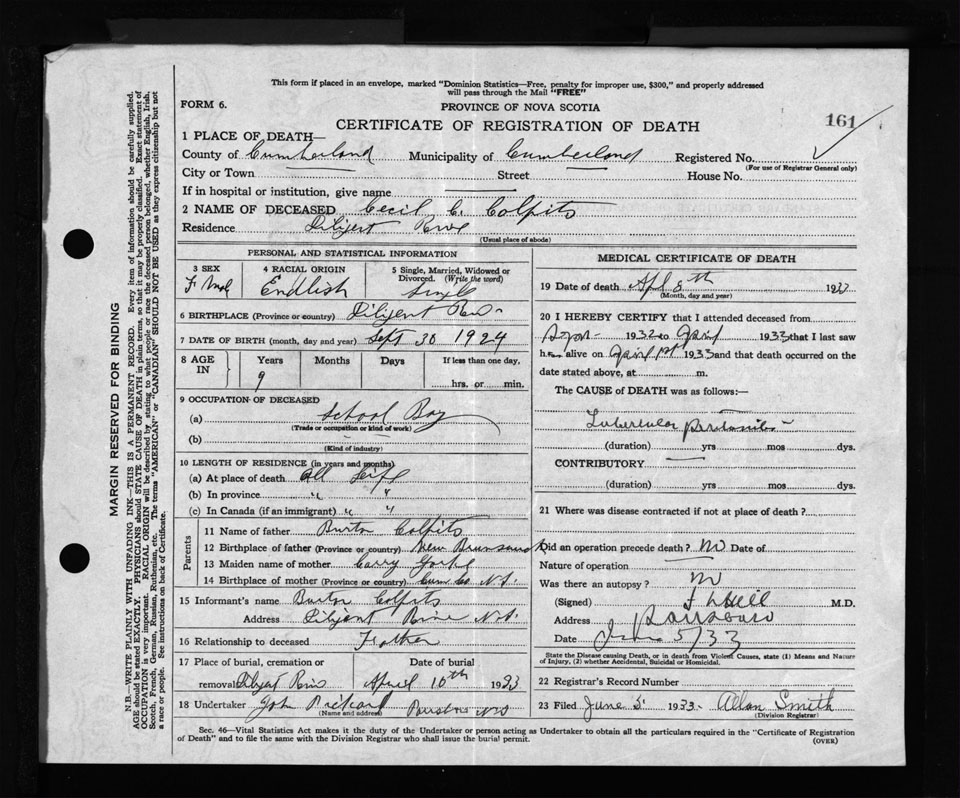 This form if placed in an envelope, marked "Dominion Statistics—Free, penalty for improper use, $300," and properly addressed
will pass through the Mail "FREE"
FORM 6.
PROVINCE OF NOVA SCOTIA
161
CERTIFICATE OF REGISTRATION OF DEATH
1 PLACE OF DEATH—
County of Cumberland Municipality of Cumberland Registered No.
(For use of Registrar General only)
City or Town Street House No.
If in hospital or institution, give name
2 NAME OF DECEASED Cecil C. Colpits
Residence Diligent River
(Usual place of abode)
PERSONAL AND STATISTICAL INFORMATION
3 SEX 4 RACIAL ORIGIN 5 Single, Married, Widowed or Divorced. (Write the word)
Endlish Single
6 BIRTHPLACE (Province or country) Diligent River
7 DATE OF BIRTH (month, day and year) Sept 30 1924
8 AGE IN Years Months Days If less than one day,
9
hrs. or min.
9 OCCUPATION OF DECEASED
(a) School Boy
(Trade or occupation or kind of work)
(b)
(Kind of industry)
10 LENGTH OF RESIDENCE (in years and months)
(a) At place of death All Life
(b) In province " "
(c) In Canada (if an immigrant) " "
Parents
11 Name of father Burton Colpits
12 Birthplace of father (Province or country) New Brunswick
13 Maiden name of mother Carry
14 Birthplace of mother (Province or country) Cum Co N.S.
15 Informant's name Burton Colpits
Address Diligent River N.S.
16 Relationship to deceased Father
17 Place of burial, cremation or removal Diligent River
Date of burial April 10th 1933
18 Undertaker John N.S.
(Name and address)
MEDICAL CERTIFICATE OF DEATH
19 Date of death Apl 8th 1933
(Month, day and year)
20 I HEREBY CERTIFY that I attended deceased from
1932 to April 1933 that I last saw
h alive on April 1st 1933 and that death occurred on the
date stated above, at m.
The CAUSE OF DEATH was as follows:—
Tubercular peritonitis
(duration) yrs mos dys.
CONTRIBUTORY
(duration) yrs mos dys.
21 Where was disease contracted if not at place of death?
Did an operation precede death? No Date of
Nature of operation
Was there an autopsy? No
(Signed) Hill M.D.
Address Parrsboro
Date 5/33
State the Disease causing Death, or in death from Violent Causes, state (1) Means and Nature
of Injury, (2) whether Accidental, Suicidal or Homicidal.
22 Registrar's Record Number
23 Filed June 5 1933 Allan Smith
(Division Registrar)
Sec. 46—Vital Statistics Act makes it the duty of the Undertaker or person acting as Undertaker to obtain all the particulars required in the "Certificate of Registration
of Death" and to file the same with the Division Registrar who shall issue the burial permit.
(OVER)
MARGIN RESERVED FOR BINDING
N.B.—WRITE PLAINLY WITH UNFADING INK—THIS IS A PERMANENT RECORD. Every item of information should be carefully supplied.
AGE should be stated EXACTLY. PHYSICIANS should STATE CAUSE OF DEATH in plain terms, so that it may be properly classified. Exact statement of
OCCUPATION is very important. RACIAL ORIGIN will be described by stating to what people or race the deceased person belonged, whether English, Irish,
Scotch, French, German, Russian, Ruthenian, etc. The terms "AMERICAN" or "CANADIAN" SHOULD NOT BE USED as they express citizenship but not
a race or people. See instructions on back of Certificate.